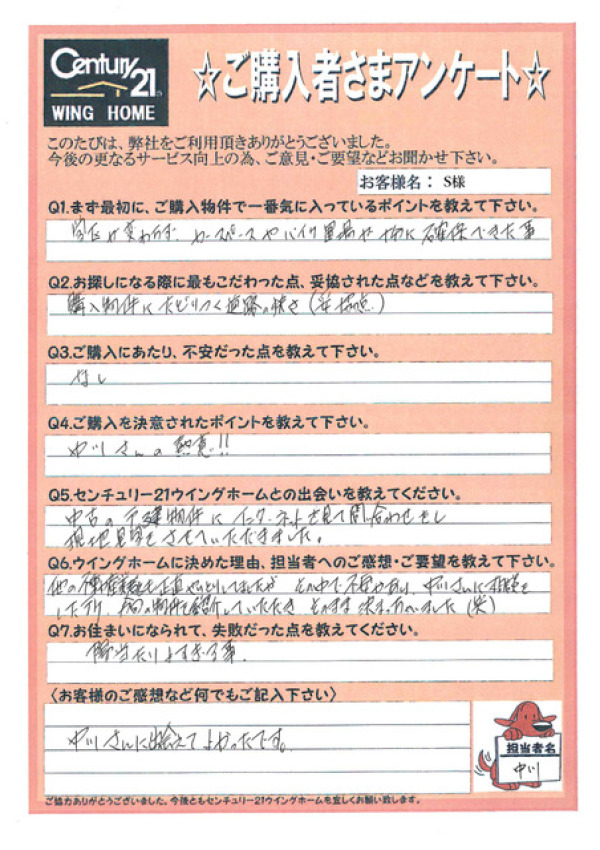 Century 21
WING HOME
☆ご購入者さまアンケート☆
このたびは、弊社をご利用頂きありがとうございました。
今後の更なるサービス向上の為、ご意見・ご要望などお聞かせ下さい。
お客様名： S様
Q1.まず最初に、ご購入物件で一番気に入っているポイントを教えて下さい。
学区が変わらず、カースペースやバイク置場が 確保できた事
Q2.お探しになる際に最もこだわった点、妥協された点などを教えて下さい。
購入物件にたどりつく道路の狭さ(妥協点)
Q3.ご購入にあたり、不安だった点を教えて下さい。
なし
Q4.ご購入を決意されたポイントを教えて下さい。
中川さんの熱意!!
Q5.センチュリー21ウイングホームとの出会いを教えてください。
中古の戸建物件にインターネットを見て問合わせをし
現地見学をさせていただきました。
Q6.ウイングホームに決めた理由、担当者へのご感想・ご要望を教えて下さい。
他の不動産 やりとりしてましたが その中で不安があり、中川さんに相談を
したり、 物件を紹介していただき そのまま 決まっちゃいました(笑)
Q7.お住まいになられて、失敗だった点を教えてください。
陽当たりよすぎる事.
〈お客様のご感想など何でもご記入下さい〉
中川さんに出会えてよかったです。
担当者名
中川
ご協力ありがとうございました。今後ともセンチュリー21ウイングホームを宜しくお願い致します。